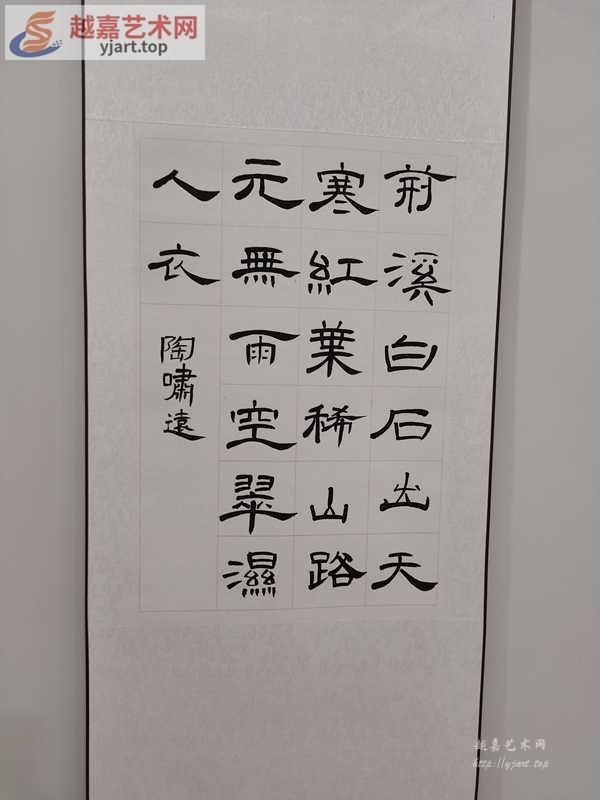 越嘉艺术网
yjart.top
荊溪白石出天
寒紅葉稀山路
元無雨空翠濕
人衣
陶嘯遠
越嘉艺术网
http://yjart.top